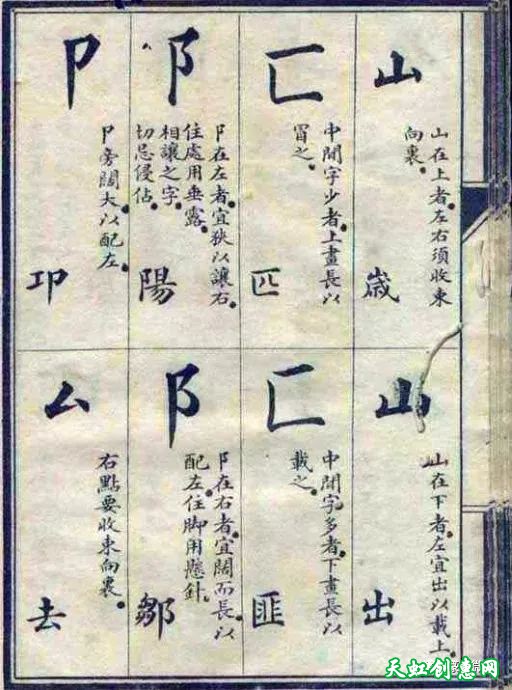 山
山在上者。左右須收束
向裏。
嵗
匚
中間字少者。上畫長以
冒之。
匹
阝
阝在左者。宜狹以讓右。
住處用垂露。
相讓之字。
切忌侵佔。
陽
卩
卩旁闊大。以配左。
卭
山
山在下者。左宜出以載上。
出
匚
中間字多者。下畫長以
載之。
匪
阝
阝在右者。宜闊而長。以
配左。住脚用懸針。
鄒
厶
右點要收束向裏。
去
天虹创意网